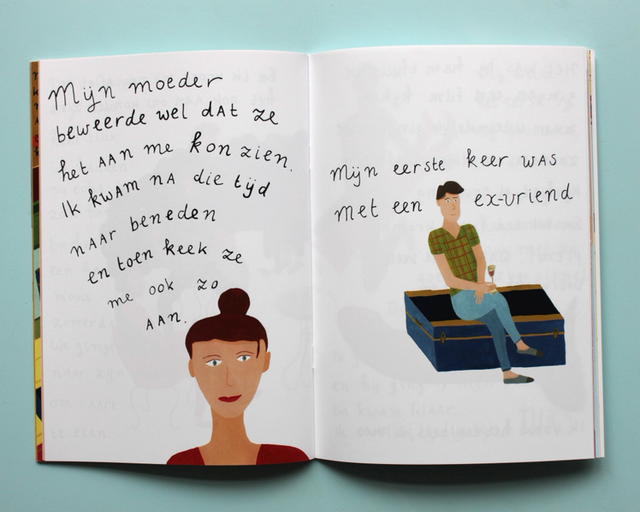 Mijn moeder
beweerde wel dat ze
het aan me kon zien.
Ik kwam na die tijd
naar beneden
en toen keek ze
me ook zo
aan.
mijn eerste keer was
met een ex-vriend